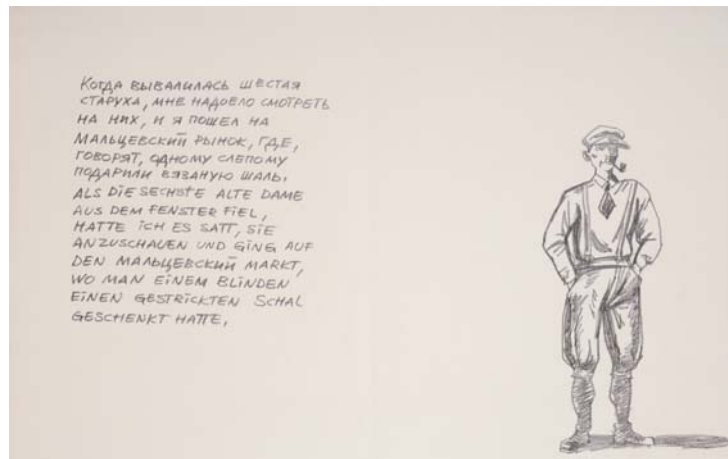 Когда вывалилась шестая
старуха, мне надоело смотреть
на них, и я пошел на
Мальцевский рынок, где,
говорят, одному слепому
подарили вязаную шаль.
ALS DIE SECHSTE ALTE DAME
AUS DEM FENSTER FIEL,
HATTE ICH ES SATT, SIE
ANZUSCHAUEN UND GING AUF
DEN МАЛЬЦЕВСКИЙ MARKT,
WO MAN EINEM BLINDEN
EINEN GESTRICKTEN SCHAL
GESCHENKT HATTE,